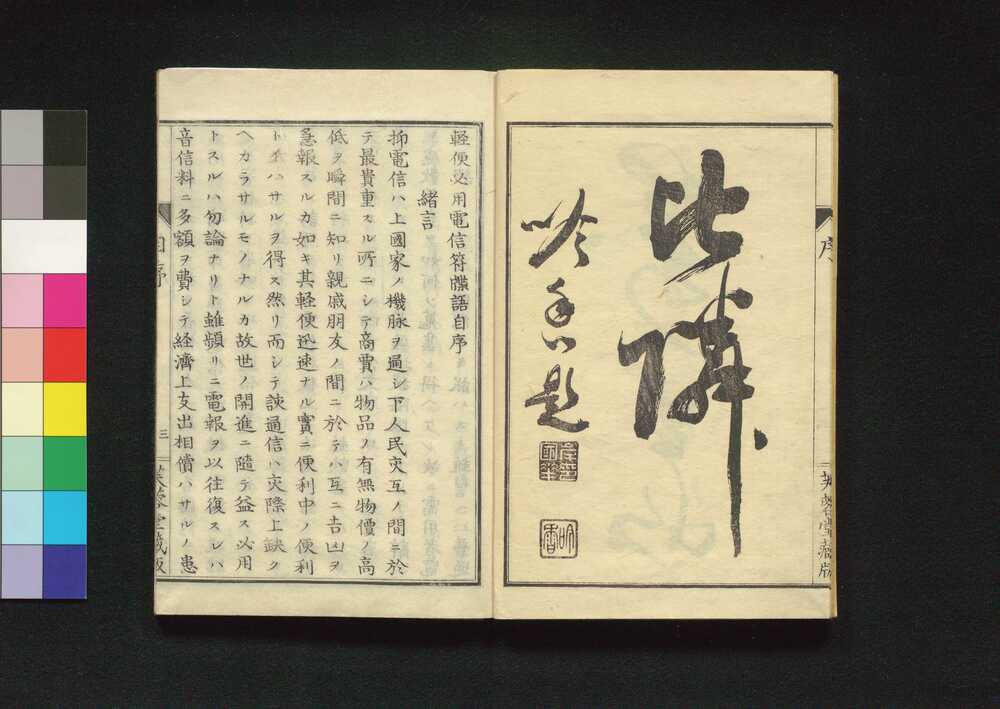 序
比隣
吟香題
吟香
芙蓉堂藏版
輕便必用電信符牒語自序
緒言
抑電信ハ上國家ノ機脉ヲ通シ下人民交互ノ間ニ於
テ最貴重スル所ニシテ商賈ハ物品ノ有無物價ノ高
低ヲ瞬間ニ知リ親戚朋友ノ間ニ於テハ互ニ吉凶ヲ
急報スルカ如キ其輕便迅速ナル實ニ便利中ノ便利
トイハサルヲ得ス然リ而シテ該通信ハ交際上缺ク
ヘカラサルモノナルカ故世ノ開進ニ隨テ益ス必用
トスルハ勿論ナリト雖頻リニ電報ヲ以往復スレハ
音信料ニ多額ヲ費シテ経濟上支出相償ハサルノ患
自序
三
芙蓉堂藏版